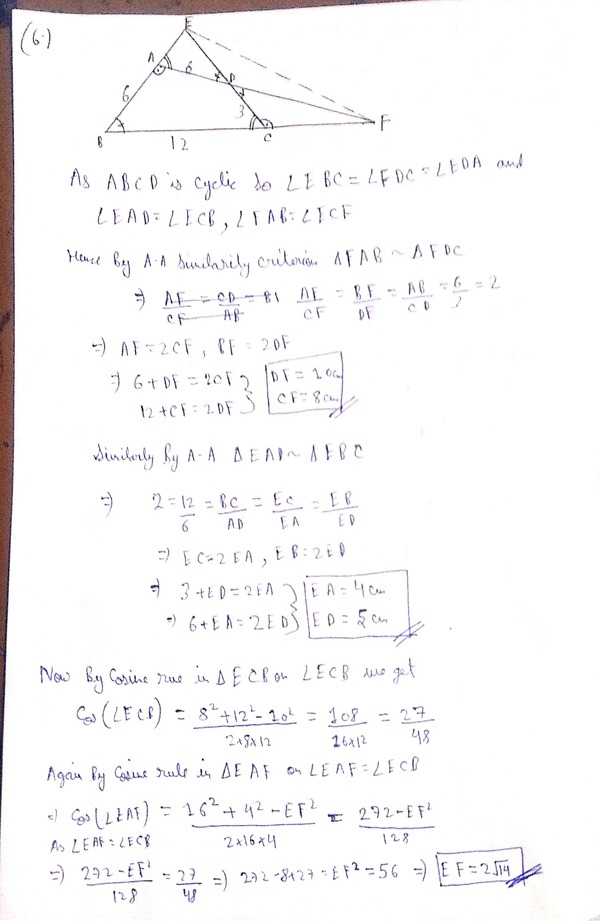 (6.)
E
A 6 D
6 3 F
B 12 C
As ABCD is cyclic so ∠EBC = ∠FDC = ∠EDA and
∠EAD = ∠ECB, ∠FAB = ∠ECF
Hence By A-A Similarity criterion ΔFAB ~ ΔFDC
⇒ AF/CF = CD/AB = BF AF/CF = BF/DF = AB/CD = 6/3 = 2
⇒ AF = 2CF, BF = 2DF
⇒ 6 + DF = 2CF } DF = 10cm
12 + CF = 2DF } CF = 8cm
Similarly By A-A ΔEAD ~ ΔEBC
⇒ 2 = 12/6 = BC/AD = EC/EA = EB/ED
⇒ EC = 2EA, EB = 2ED
⇒ 3 + ED = 2EA } EA = 4cm
⇒ 6 + EA = 2ED } ED = 5cm
Now By Cosine rule in ΔECB on ∠ECB we get
Cos(∠ECB) = 8² + 12² - 10² / 2×8×12 = 108 / 16×12 = 27/48
Again By Cosine rule in ΔEAF on ∠EAF = ∠ECB
⇒ Cos(∠EAF) = 16² + 4² - EF² / 2×16×4 = 272 - EF² / 128
As ∠EAF = ∠ECB
⇒ 272 - EF² / 128 = 27/48 ⇒ 272 - 8×27 = EF² = 56 ⇒ EF = 2√14